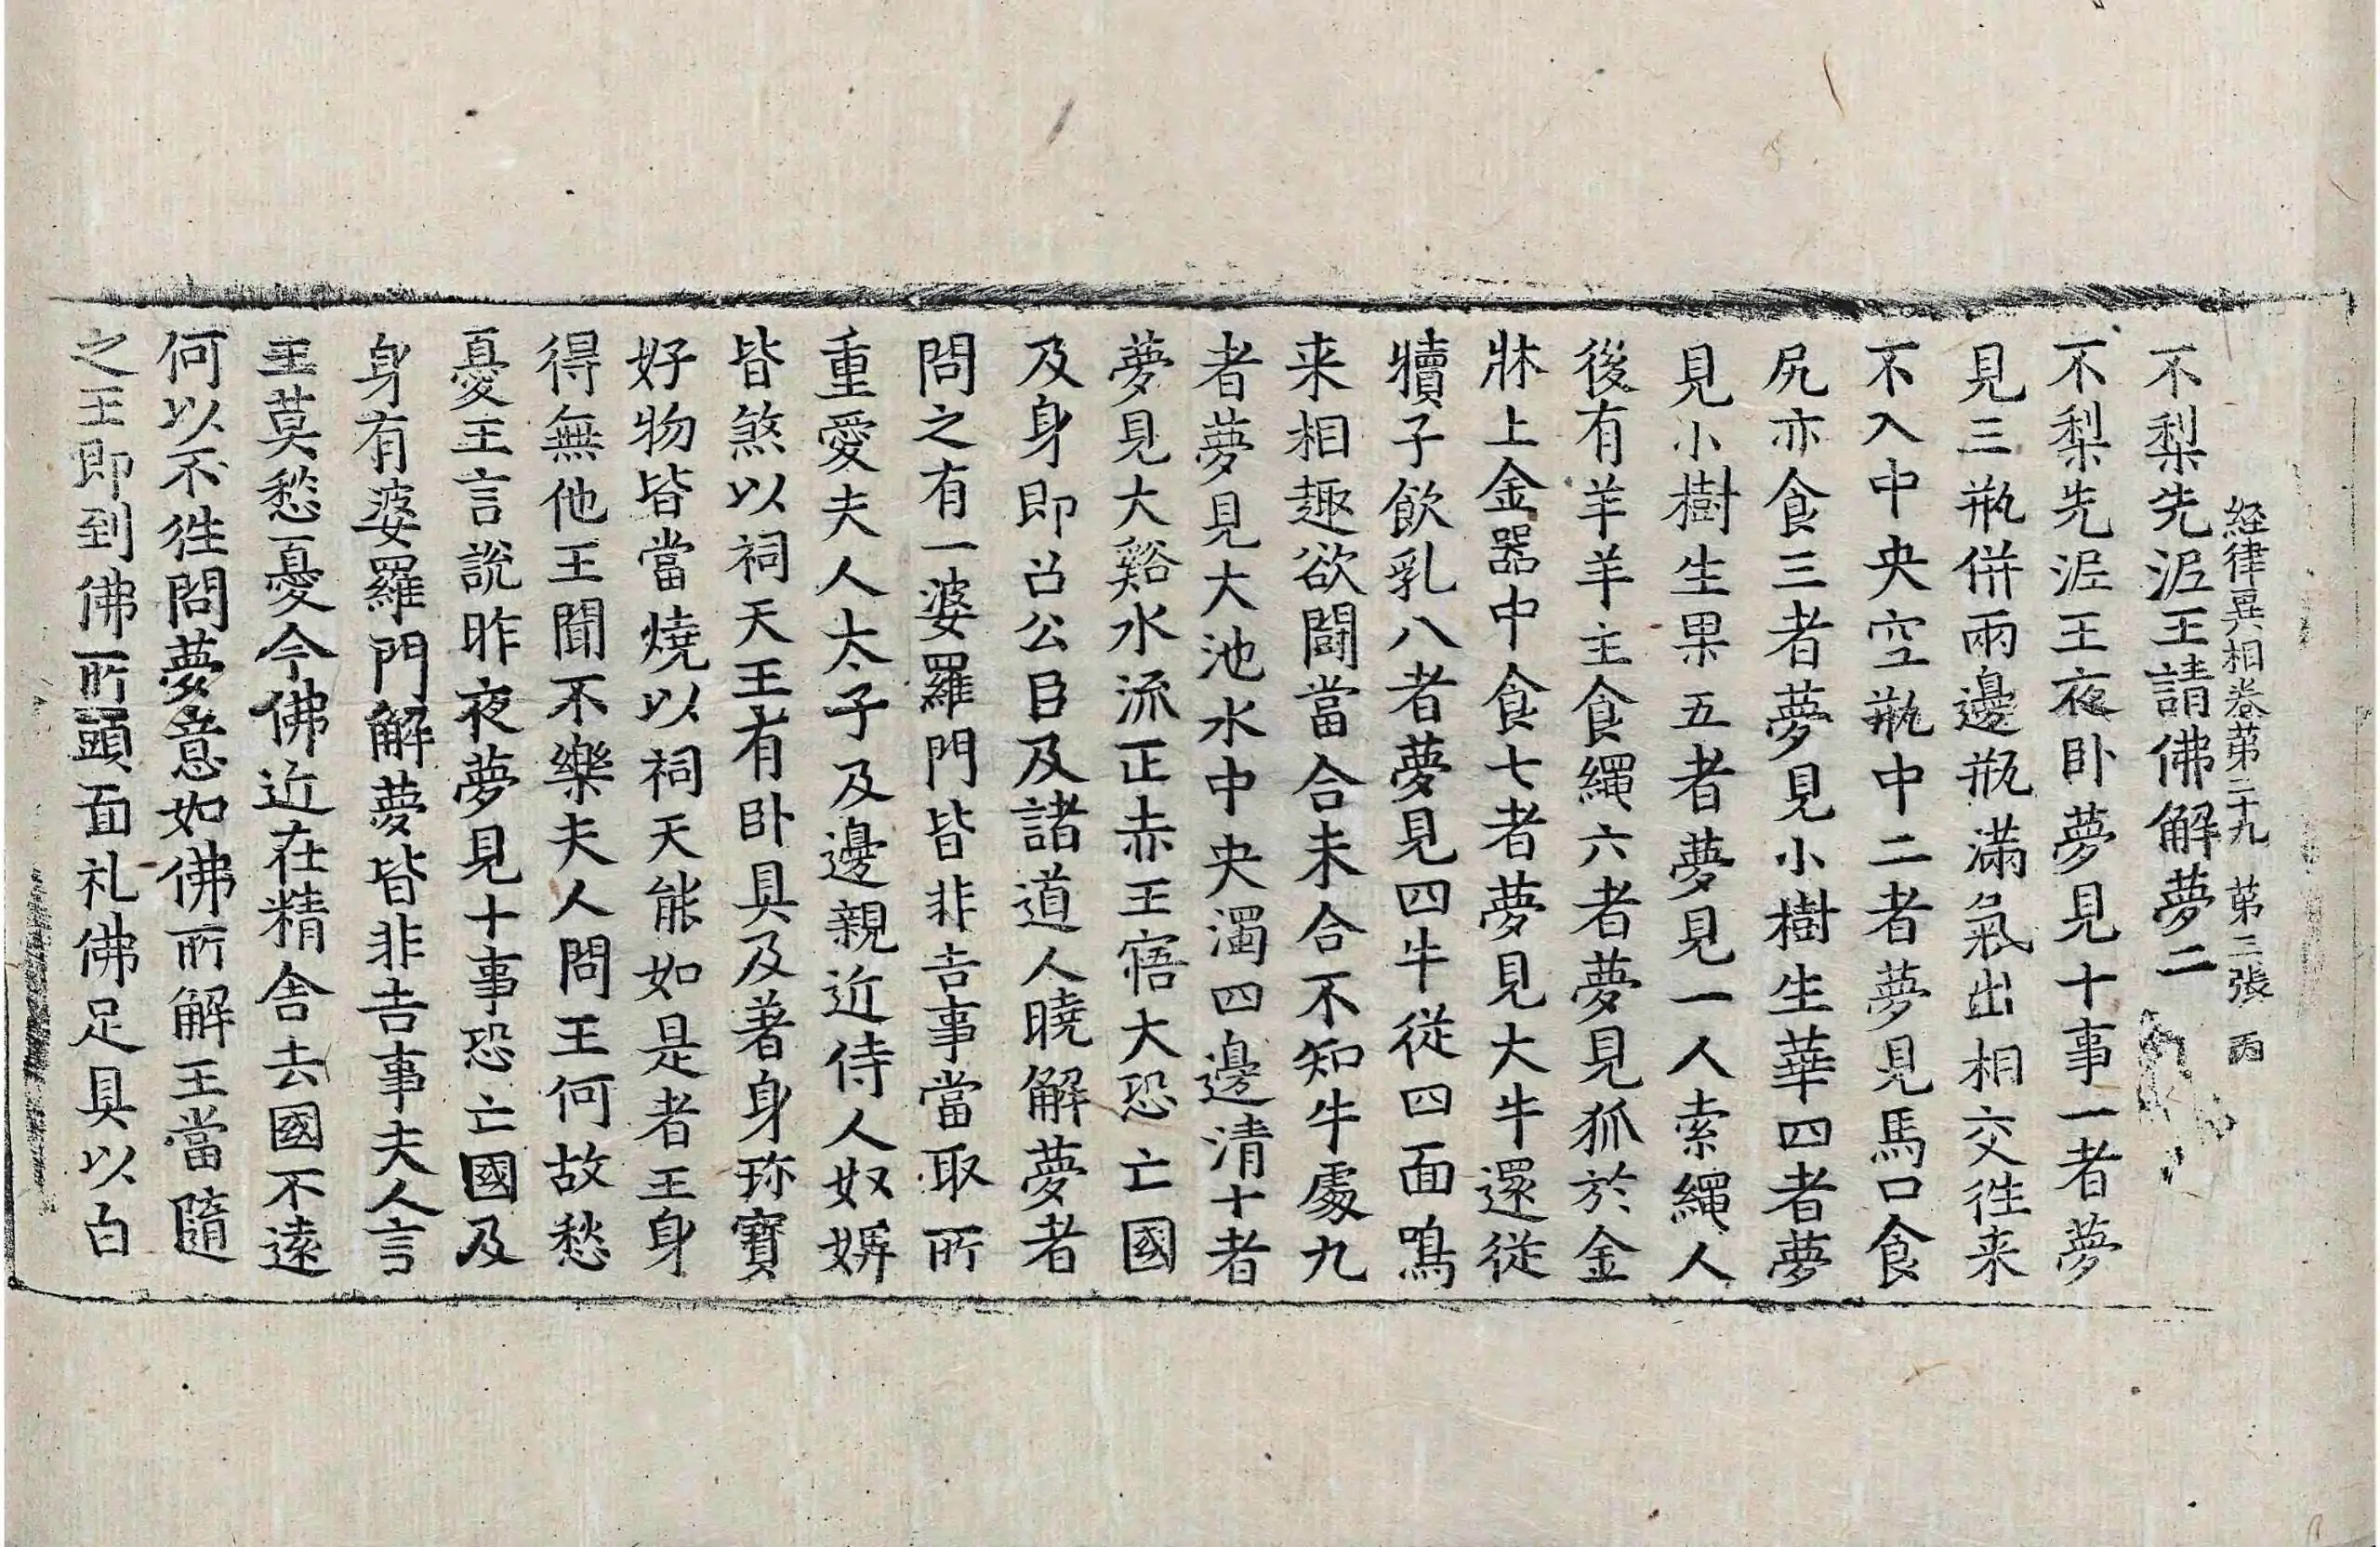 経律異相卷苐二十九 苐二張 丙
不梨先泥王請佛解夢二
不梨先泥王夜卧夢見十事一者夢
見三瓶併兩邊瓶滿氣出相交徃来
不入中央空瓶中二者夢見馬口食
尻亦食三者夢見小樹生華四者夢
見小樹生果五者夢見一人索繩人
後有羊羊主食繩六者夢見狐於金
牀上金器中食七者夢見大牛還從
犢子飲乳八者夢見四牛從四面鳴
来相趣欲鬪當合未合不知牛處九
者夢見大池水中央濁四邊清十者
夢見大谿水流正赤王寤大恐亡國
及身即召公臣及諸道人曉解夢者
問之有一婆羅門皆非吉事當取所
重愛夫人太子及邊親近侍人奴婢
皆煞以祠天王有卧具及著身珎寶
好物皆當燒以祠天能如是者王身
得無他王聞不樂夫人問王何故愁
憂王言說昨夜夢見十事恐亡國及
身有婆羅門解夢皆非吉事夫人言
王莫愁憂今佛近在精舍去國不遠
何以不徃問夢意如佛所解王當隨
之王即到佛所頭面礼佛足具以白